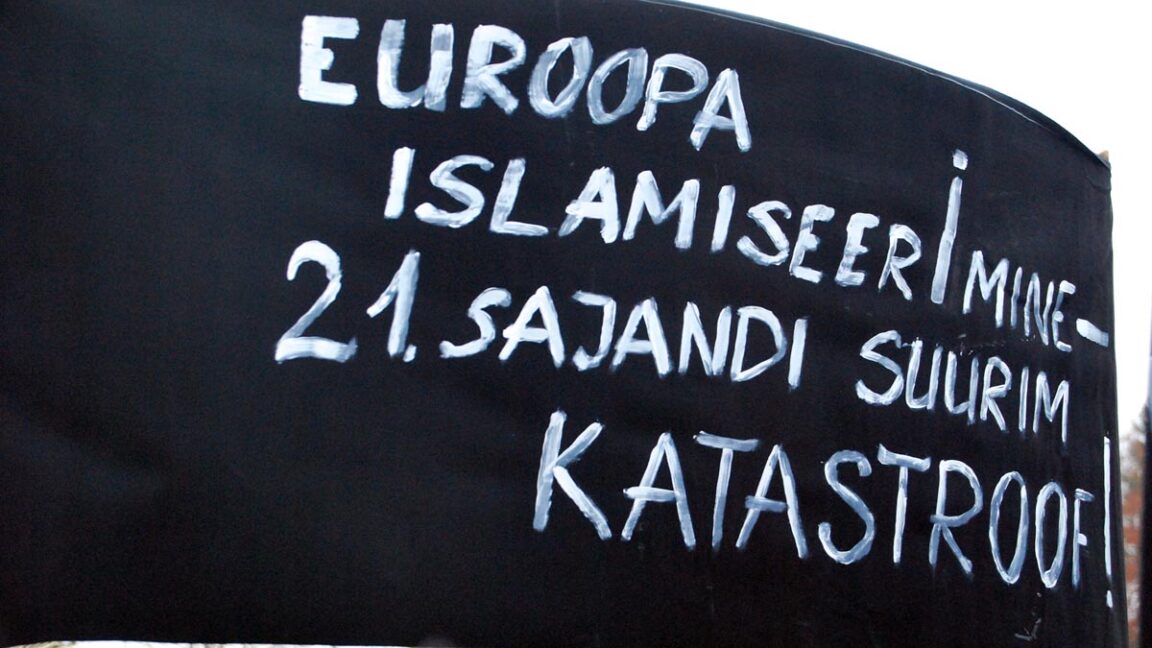 EUROOPA
ISLAMISEERIMINE-
21. SAJANDI SUURIM
KATASTROOF!